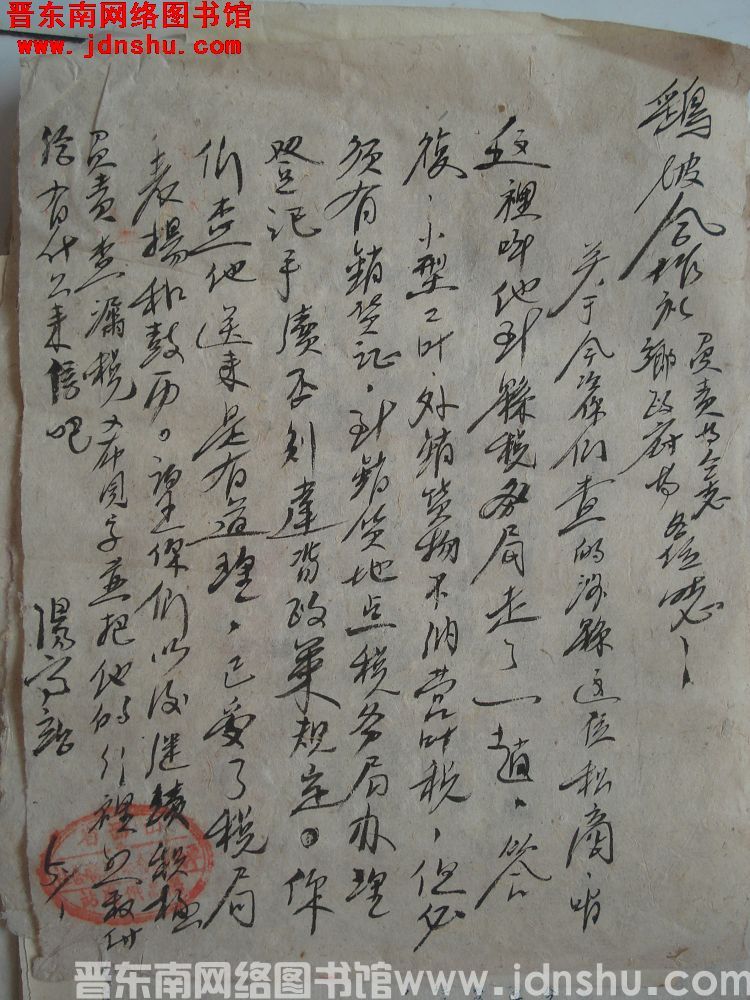 晋东南网络图书馆
www.jdnshu.com
鸡坡合作社 负责
乡政府 各位
关于今次你们查的 县这位 商,咱
这里叫他到县税务局走了一趟,答
复,小型工叶,外销货物不纳营叶税,但必
须有销货证,到销货地点税务局办理
登记手续否则违背政策规定。你
们查他送来是有道理,已受了税局
表扬和鼓励。 你们以后继续积极
负责查漏税 并把他的行 照数付
给 有什么来信吧
晋东南网络图书馆 www.jdnshu.com